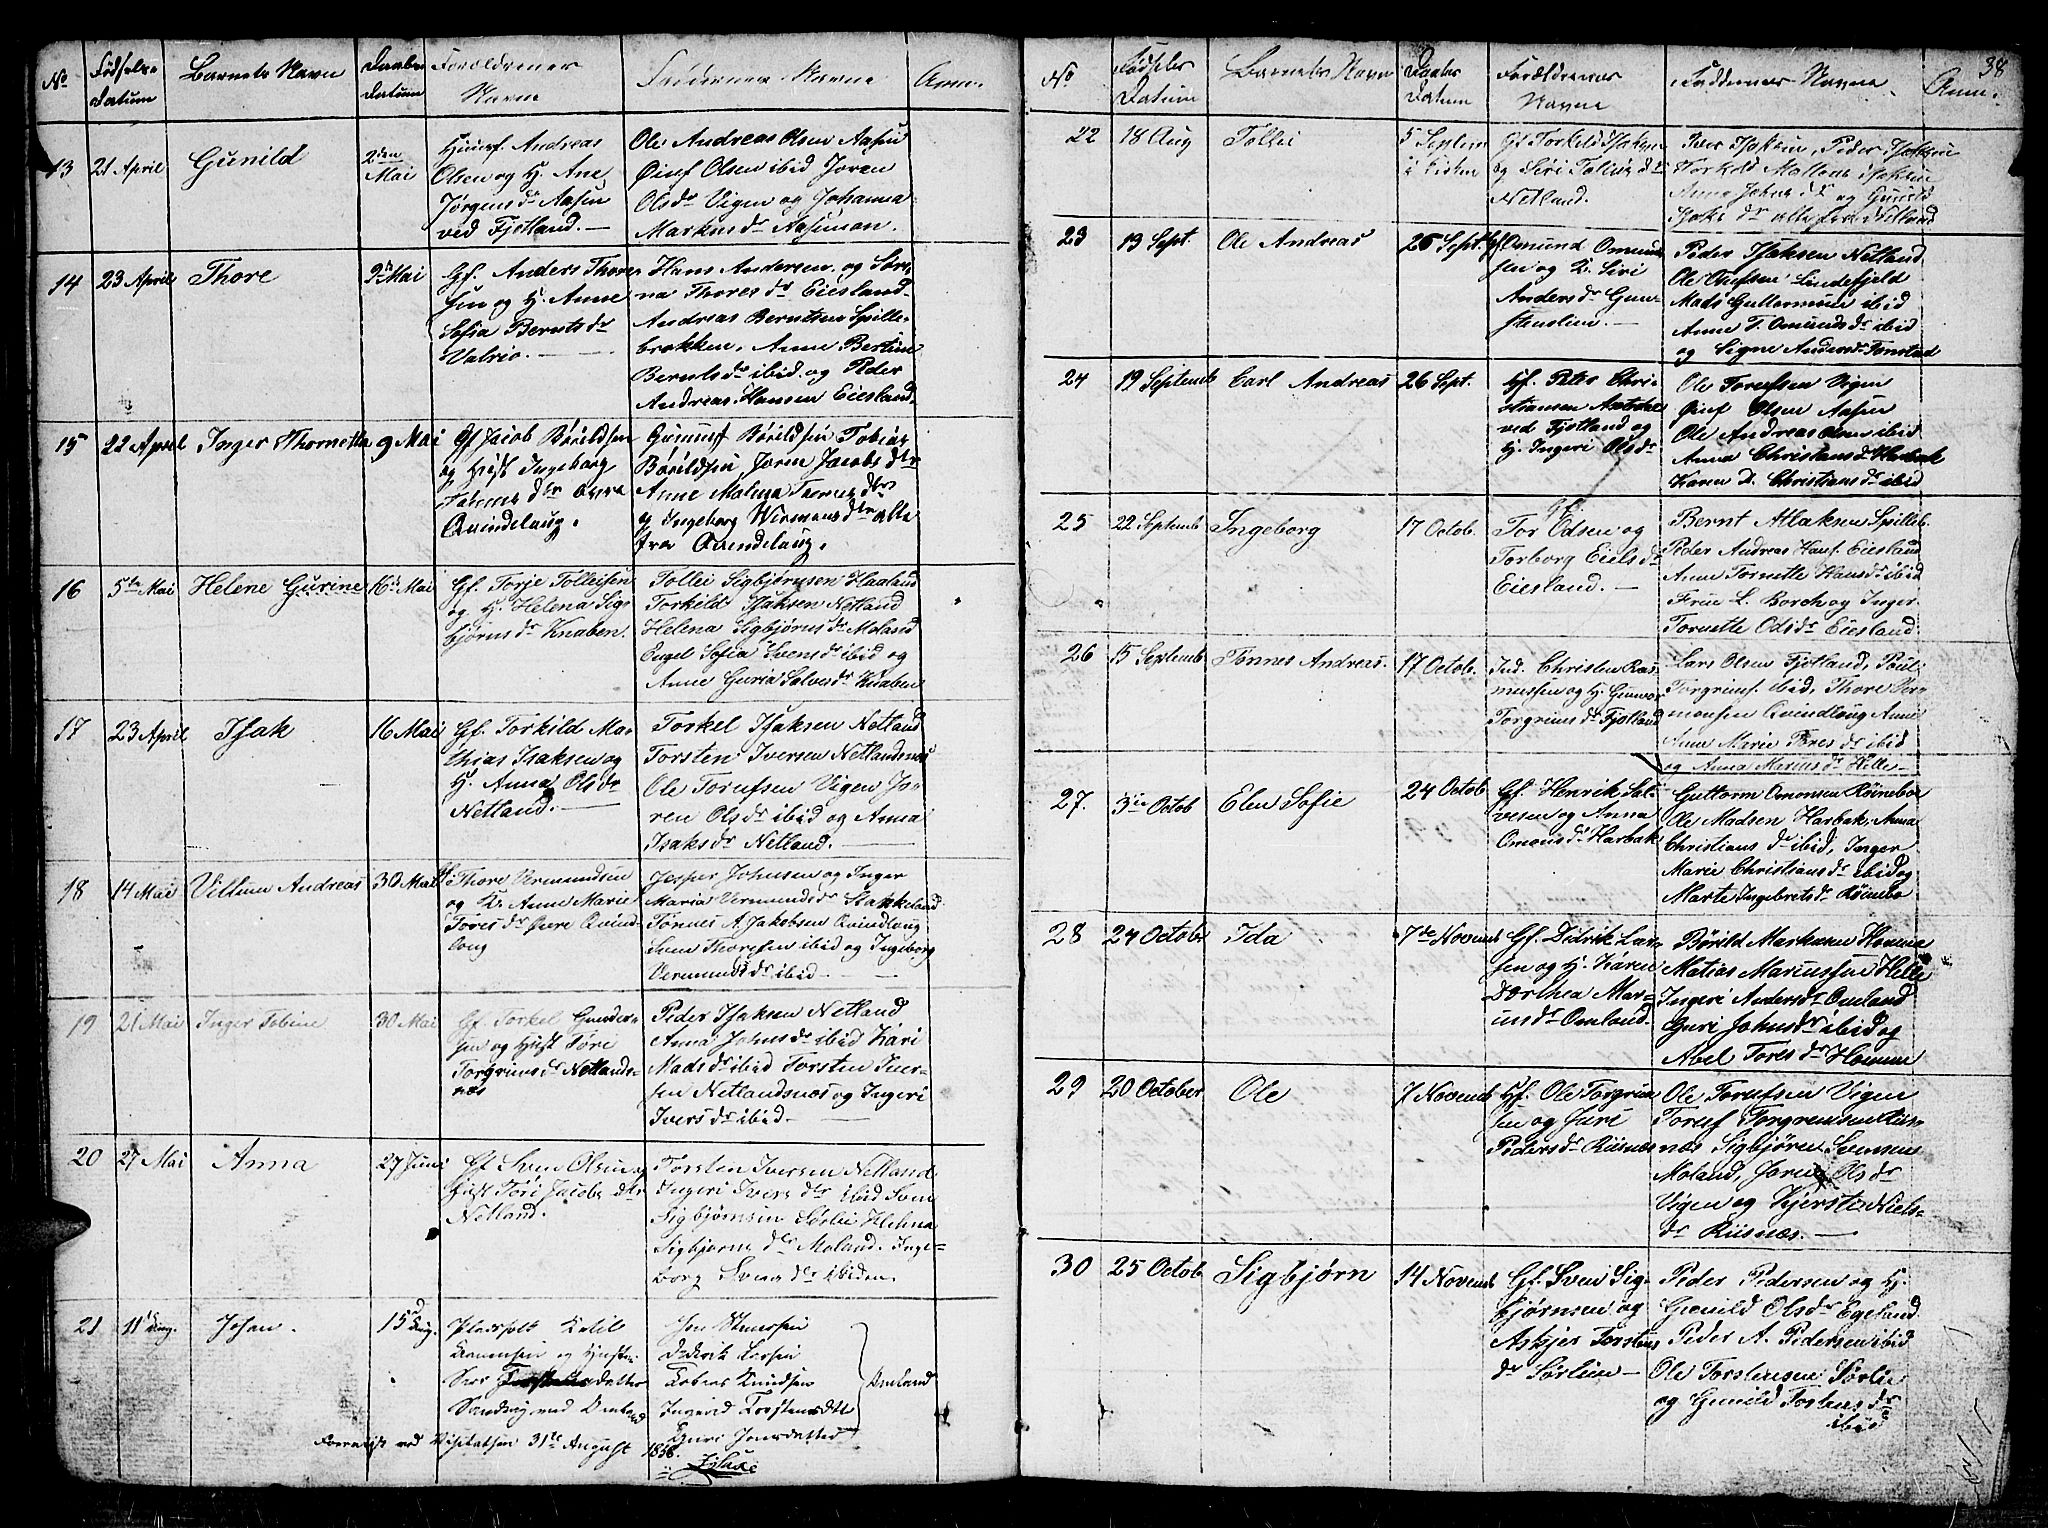 No
Fødsels-
Datum
Barnets Navn
Daabs
Datum
Forældrenes
Navne
Faddernes Navne
Anm.
13
21 April
Gunild
2den
Mai
Huusf. Andreas
Olsen og H. Ane
Jørgensdr Aasen
ved Fjotland. —
Ole Andreas Olsen Aasen
Olsen ibid Joren
Olsdr Vigen og Johanna
Markusdr Aasmon.
14
23 April
Thore
9de Mai
Gf. Anders Thore
sen og H. Anne
Sofia Berntsdr
—
Hans Andersen og Sere-
na Thoresdr Eiesland.
Andreas Berntsen Spille-
brokken. Anne Bertine
Berntsdr ibid. og Peder
Andreas Hansen Eiesland.
15
22 April
Inger Thornetta
9 Mai
Gf Jacob Børildsen
og Hust. Ingeborg
dtr øvre
Qvindelaug.
Gunuf Børildsen Tobias
Børildsen Joren Jacobsdtr
Anne Malena dtr
og Ingeborg dtr alle
fra Qvindelaug.
16
5te Mai
Helene Gurine
16de Mai
Gf. Torje Tolleisen
og H. Helena Sig-
bjørnsdr Knaben.
Tollei Sigbjørnsen Haaland
Torkild Isaksen Netland
Helena Sigbjørnsdr Moland
Engel Sofia Svensdr ibid og
Anne Guria Salvesdr Knaben
17
23 April
Isak
16 Mai
Gf. Torkild Ma-
thias Isaksen og
H. Anna Olsdr
Netland. —
Torkel Isaksen Netland
Torsten Iversen Netlandsnæs
Ole Torufsen Vigen Jo-
ren Olsdr ibid og Anna
Isaksdr Netland. —
18
14 Mai
Villum Andreas
30 Mai
Gf Thore Vermundsen
og K. Anne Marie
Toresdr Øvre Qvind-
loug
Jesper Johnsen og Inger
Maria Vermundsdr Stakkeland
Tønnes A. Jakobsen Qvindloug
Sven Thoresen ibid og Ingeborg
Vermundsdr ibid. —
19
21 Mai
Inger Tobine
30 Mai
Gf. Torkel Gunder-
sen og Hust Tore
Torgrimsdr Netlands-
næs
Peder Isaksen Netland
Anna Johnsdr ibid Kari
Madsdr ibid Torsten Iver-
sen Netlandsnæs og Ingeri
Iversdr ibid. —
20
27 Mai
Anna
27 Juni
Gf. Sven Olsen og
Hust Tori Jacobsdtr
Netland.
Torsten Iversen Netland
Ingeri Iversdtr ibid Sven
Sigbjørnsen Sørlie Helena
Sigbjørnsdtr Moland. Inge-
borg Svensdtr ibiden.
21
11 Aug.
Johan.
15d Aug.
Pladsfolk Ketil
og Hustr.
datter
Sandvig ved Omland
Jon
Diderik Larsen
Tobias Knudsen
Torstensdtt
Guri Jonsdatter
Omland
Foreviist ved Visitatsen 31te August 1858.
38
No
Fødsels
Datum
Barnets Navn
Daabs
Datum
Forældrenes
Navne
Faddernes Navne
Anm.
22
18 Aug
Tollei
5 Septem
i Kirken
Gf Torkild Isaksen
og Siri Toliesdr
Netland.
Iver Isaksen, Peder Isaksen
Torkild Isaksen
Anna Johnsdr og Gunild
Isaksdr alle fra Netland
23
13 Sept.
Ole Andreas
26 Sept.
Gf. Omund Omund-
sen og K. Siri
Andersdr Gun-
stenslien. —
Peder Isaksen Netland
Ole Olufsen Lindefjeld
Mads Guttormsen ibid
Anne T. Omundsdr ibid
og Signe Andersdr Tonstad
24
19 Septemb
Carl Andreas
26 Sept.
Gf. Peter Chri-
stiansen
ved Fjotland og
H. Ingeri Olsdr
Ole Torufsen Vigen
Olsen Aasen
Ole Andreas Olsen ibid
Anna Christiansdr Harbak
Karen D. Christiansdr ibid
25
22 Septemb
Ingeborg
17 Octob.
Gf.
Tor Odsen og
Torborg Eielsdr
Eiesland. —
Bernt Atlaksen Spilleb.
Peder Andreas Hansf. Eiesland
Anne Tornette Hansdr ibid
Frue L. Borch og Inger
Tornette Odsdr Eiesland
26
15 Septemb
Tønnes Andreas.
17 Octob.
Ind. Christen Ras-
mussen og H. Gunvor
Torgrimsdr Fjotland
Lars Olsen Fjotland, Poul
Torgrims. ibid, Thore Ver-
monsen Qvindloug Anne
Anne Marie Toresdr ibid
og Anna Mariusdr Helle —
27.
3die Octob
Elen Sofie
24 Octob
Gf. Henrik Sal-
vesen og Anna
Omonsdr Harbak
Guttorm Omonsen Røinebøe
Ole Madsen Harbak, Anna
Christiansdr ibid, Inger
Marie Christiansdr ibid og
Marte Ingebretsdr Røinebø
28
24 October
Ida
7de Novemb
Gf. Didrik Lar-
sen og H. Karen
Dorthea Mari-
usdr Omland.
Børild Markusen Homme
Matias Mariussen Helle
Ingeri Andersdr Omland
Guri Johnsdr ibid og
Abel Toresdr Homme
29
20 October
Ole
7 Novemb
Gf. Ole Torgrim-
sen og Juri
Pedersdr Riisnæs
Ole Torufsen Vigen
Toruf Torgrimsen Riis-
næs Sigbjørn Svensen
Moland, Joren Olsdr
Vigen og Kjerste Niels-
dr Riisnæs. —
30
25 Octob
Sigbjørn
14 Novemb
Gf. Sven Sig-
bjørnsen og
Askjer Torstens
dr Sørlien —
Peder Pedersen og H.
Gunild Olsdr Egeland.
Peder A. Pedersen ibid
Ole Torstensen Sørlie
og Gunild Torstensdr
ibid